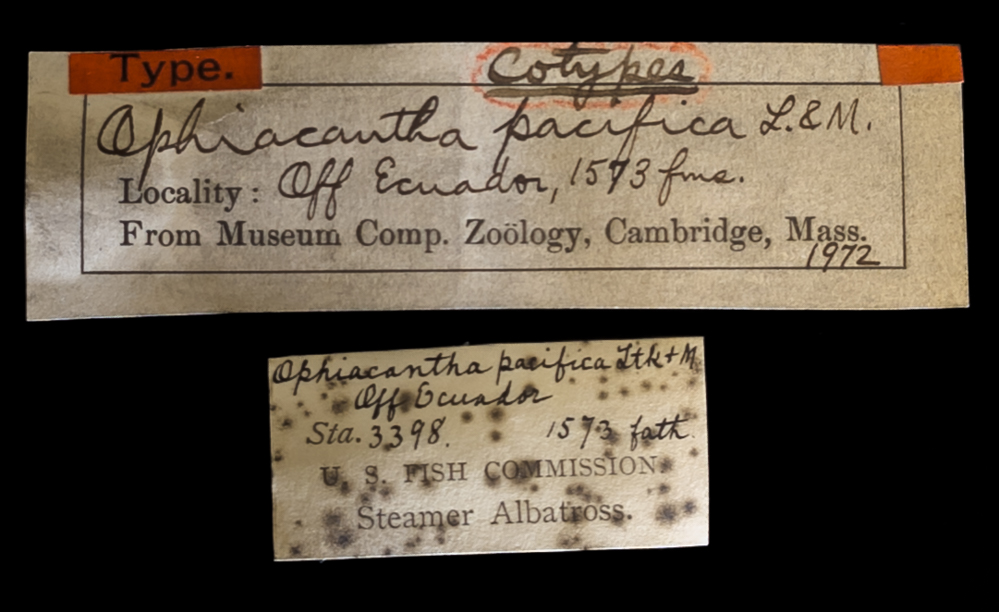 Type. Cotypes
Ophiacantha pacifica L.&M.
Locality: Off Ecuador, 1573 fms.
From Museum Comp. Zoölogy, Cambridge, Mass.
1972
Ophiacantha pacifica Ltk+M
Off Ecuador
Sta. 3398. 1573 fath.
U. S. FISH COMMISSION
Steamer Albatross.